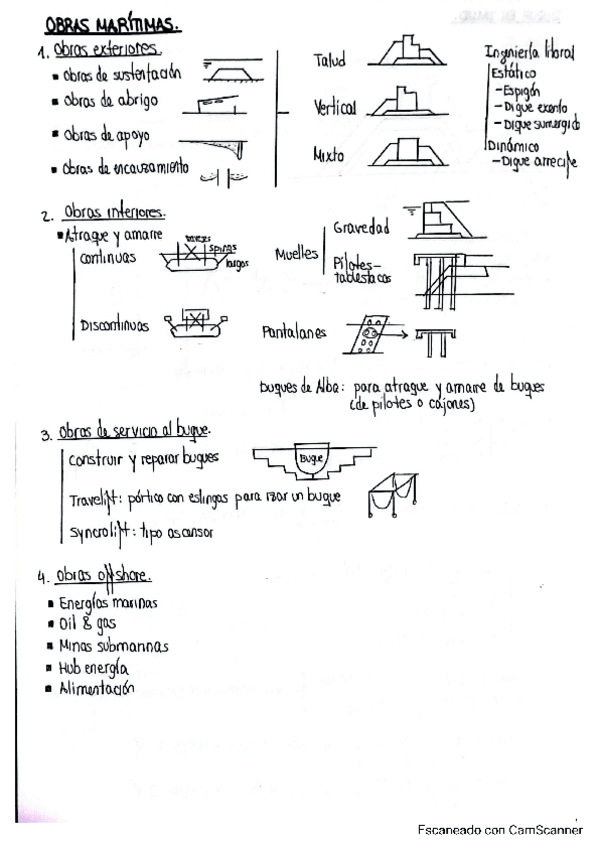 OBRAS MARÍTIMAS.
1. Obras exteriores.
▪ Obras de sustentación
▪ Obras de abrigo
▪ Obras de apoyo
▪ Obras de encauzamiento
Talud
Vertical
Mixto
Ingeniería litoral
Estático
- Espigón
- Dique exento
- Dique sumergido
Dinámico
- Dique arrecife
2. Obras interiores.
▪ Atraque y amarre
Continuas
traveses
springs
largos
Discontinuas
Muelles
Gravedad
Pilotes-
tablestacas
Pantalanes
Duques de Alba: para atraque y amarre de buques
(de pilotes o cajones)
3. Obras de servicio al buque.
Construir y reparar buques
Buque
Travelift: pórtico con eslingas para izar un buque
Syncrolift: tipo ascensor
4. Obras offshore.
▪ Energías marinas
▪ Oil & gas
▪ Minas submarinas
▪ Hub energía
▪ Alimentación
Escaneado con CamScanner